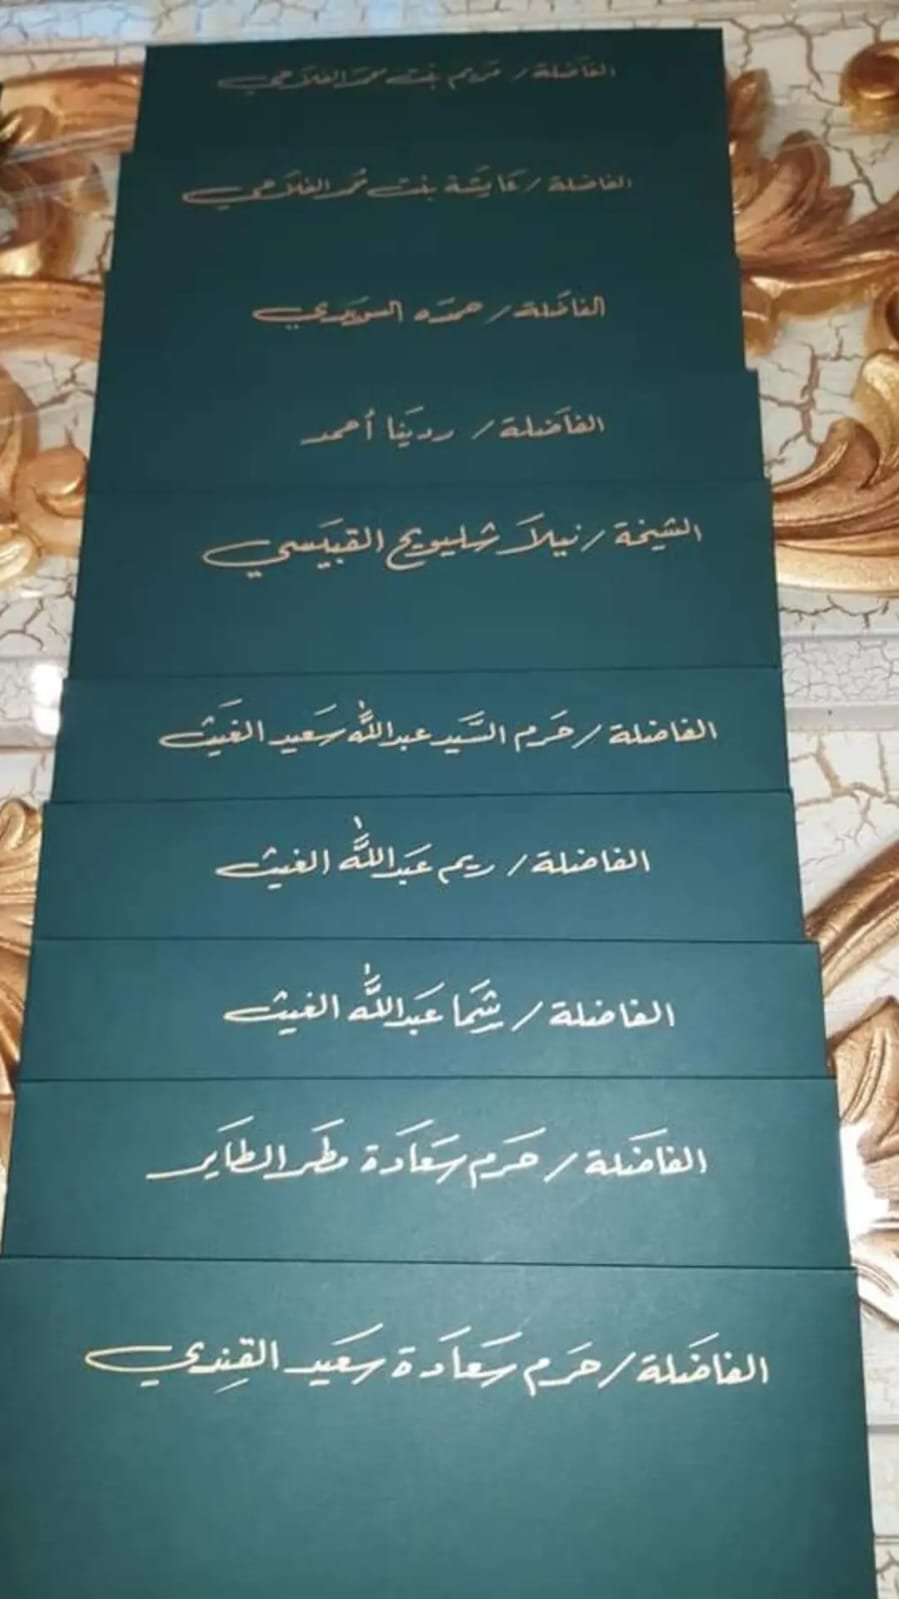 الفاضلة / مريم بنت محمد الفلاحي
الفاضلة / عايشة بنت محمد الفلاحي
الفاضلة / حمده السويدي
الفاضلة / ردينا أحمد
الشيخة / نيلا شليويح القبيسي
الفاضلة / حرم السيد عبدالله سعيد الغيث
الفاضلة / ريم عبدالله الغيث
الفاضلة / شما عبدالله الغيث
الفاضلة / حرم سعادة مطر الطاير
الفاضلة / حرم سعادة سعيد القندي